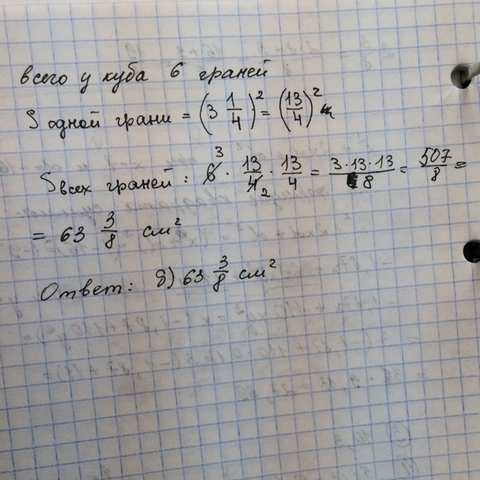 всего у куба 6 граней
S одной грани = (3 1/4)² = (13/4)²
S всех граней: 6 3 · 13/4 2 · 13/4 = 3·13·13/8 = 507/8 =
= 63 3/8 см²
Ответ: б) 63 3/8 см²